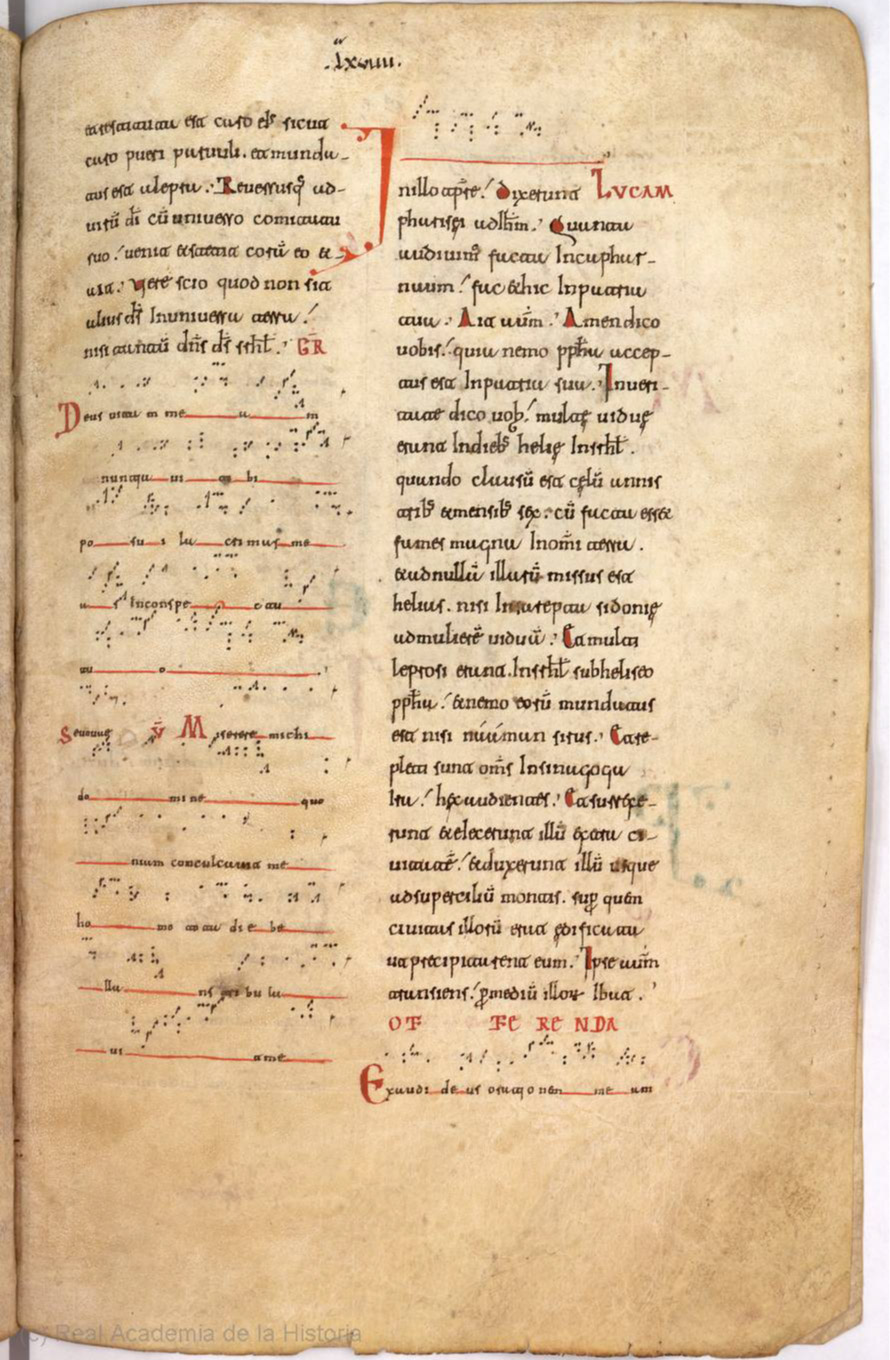 .lxviiii.
& restituta est caro ei᷒ sicut
caro pueri paruuli. & munda-
tus est a lepra. Reuersusq; ad
uirū dī cū uniuerso comitatu
suo. uenit & stetit corā eo & 
ait. Vere scio quod non sit
alius d̄s In uniuersa terra
nisi tantū dn̄s d̄s isrl̄. GR
Deus uitam me a m
nuntia ui ti bi
po su i la cri mas me
a s In conspe c tu
tu o
V̄ Miserere michi
do mi ne quo
niam conculcauit me
ho mo to ta di e be
lla ns tri bu la
ui t me
LUCAM
In illo tp̄re. Dixerunt
pharisei ad ih̄m. Quanta
audiuim᷒ facta In caphar-
naum. fac & hic In patria
tua. Ait autm̄. Amen dico
uobis. quia nemo pph̄a accep-
tus est In patria sua. In ueri-
tate dico uob᷒. multe uidue
erant In dieb᷒ helie In isrl̄.
quando clausū est celū annis
trib᷒ & mensib᷒ sex. cū facta esset
fames magna In om̄i terra.
& ad nullā illarū missus est
helias. nisi In sarepta sidonie
ad mulierē uiduā. & multi
leprosi erant. In isrl̄ sub heliseo
pph̄a. & nemo eorū mundatus
est nisi naāman sirus. & re-
pleti sunt om̄s In sinagoga
Ira. hec audientes. & surrexe-
runt & eiecerunt illū extra ci-
uitatē. & duxerunt illū usque
ad supercilū montis. supr̄ quen
ciuitas illorū erat edificata
ut precipitarent eum. Ipse autm̄
transiens. p̄ mediū illor̄ Ibat.
OF FE RE NDA
Exaudi de us orati o nen me am
(c) Real Academia de la Historia